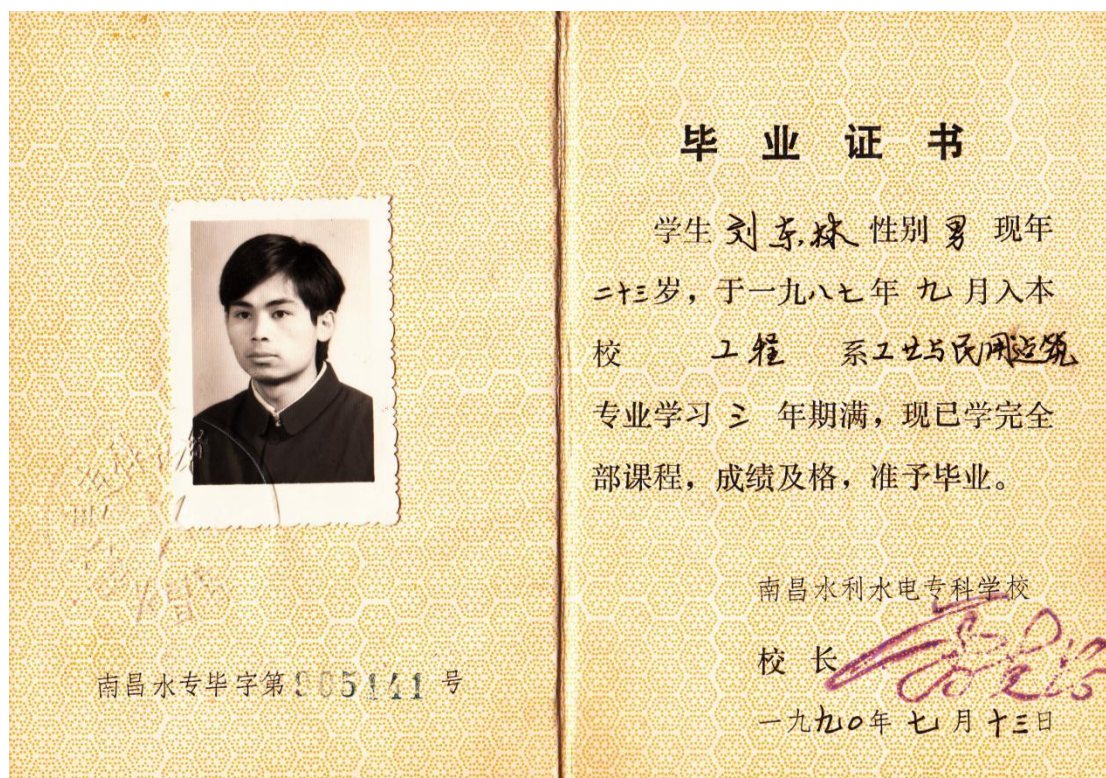 南昌水专毕字第 905141 号
毕业证书
学生 刘东 性别 男 现年
二十三岁，于一九八七年 九 月入本
校 工程 系工业与民用建筑
专业学习 三 年期满，现已学完全
部课程，成绩及格，准予毕业。
南昌水利水电专科学校
校 长
一九九〇年 七 月 十三日